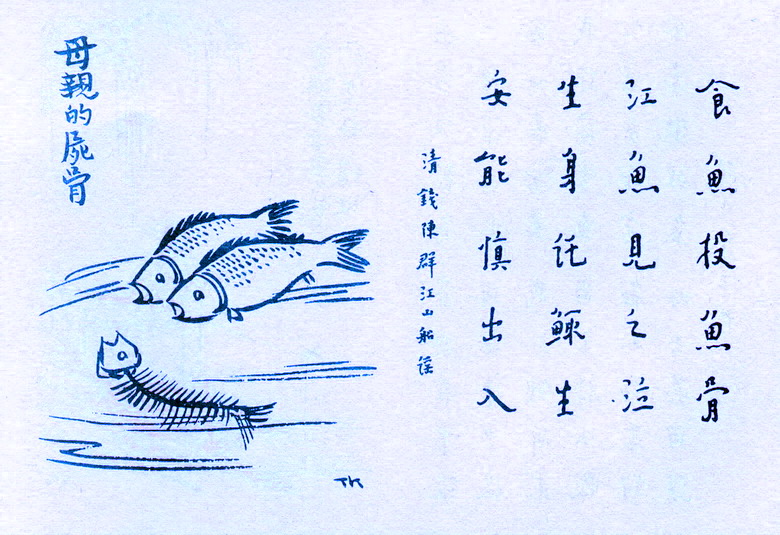 食魚投魚骨
江魚見之泣
生身託鯫生
安能慎出入
清錢陳群江山船謠
母親的屍骨
TK